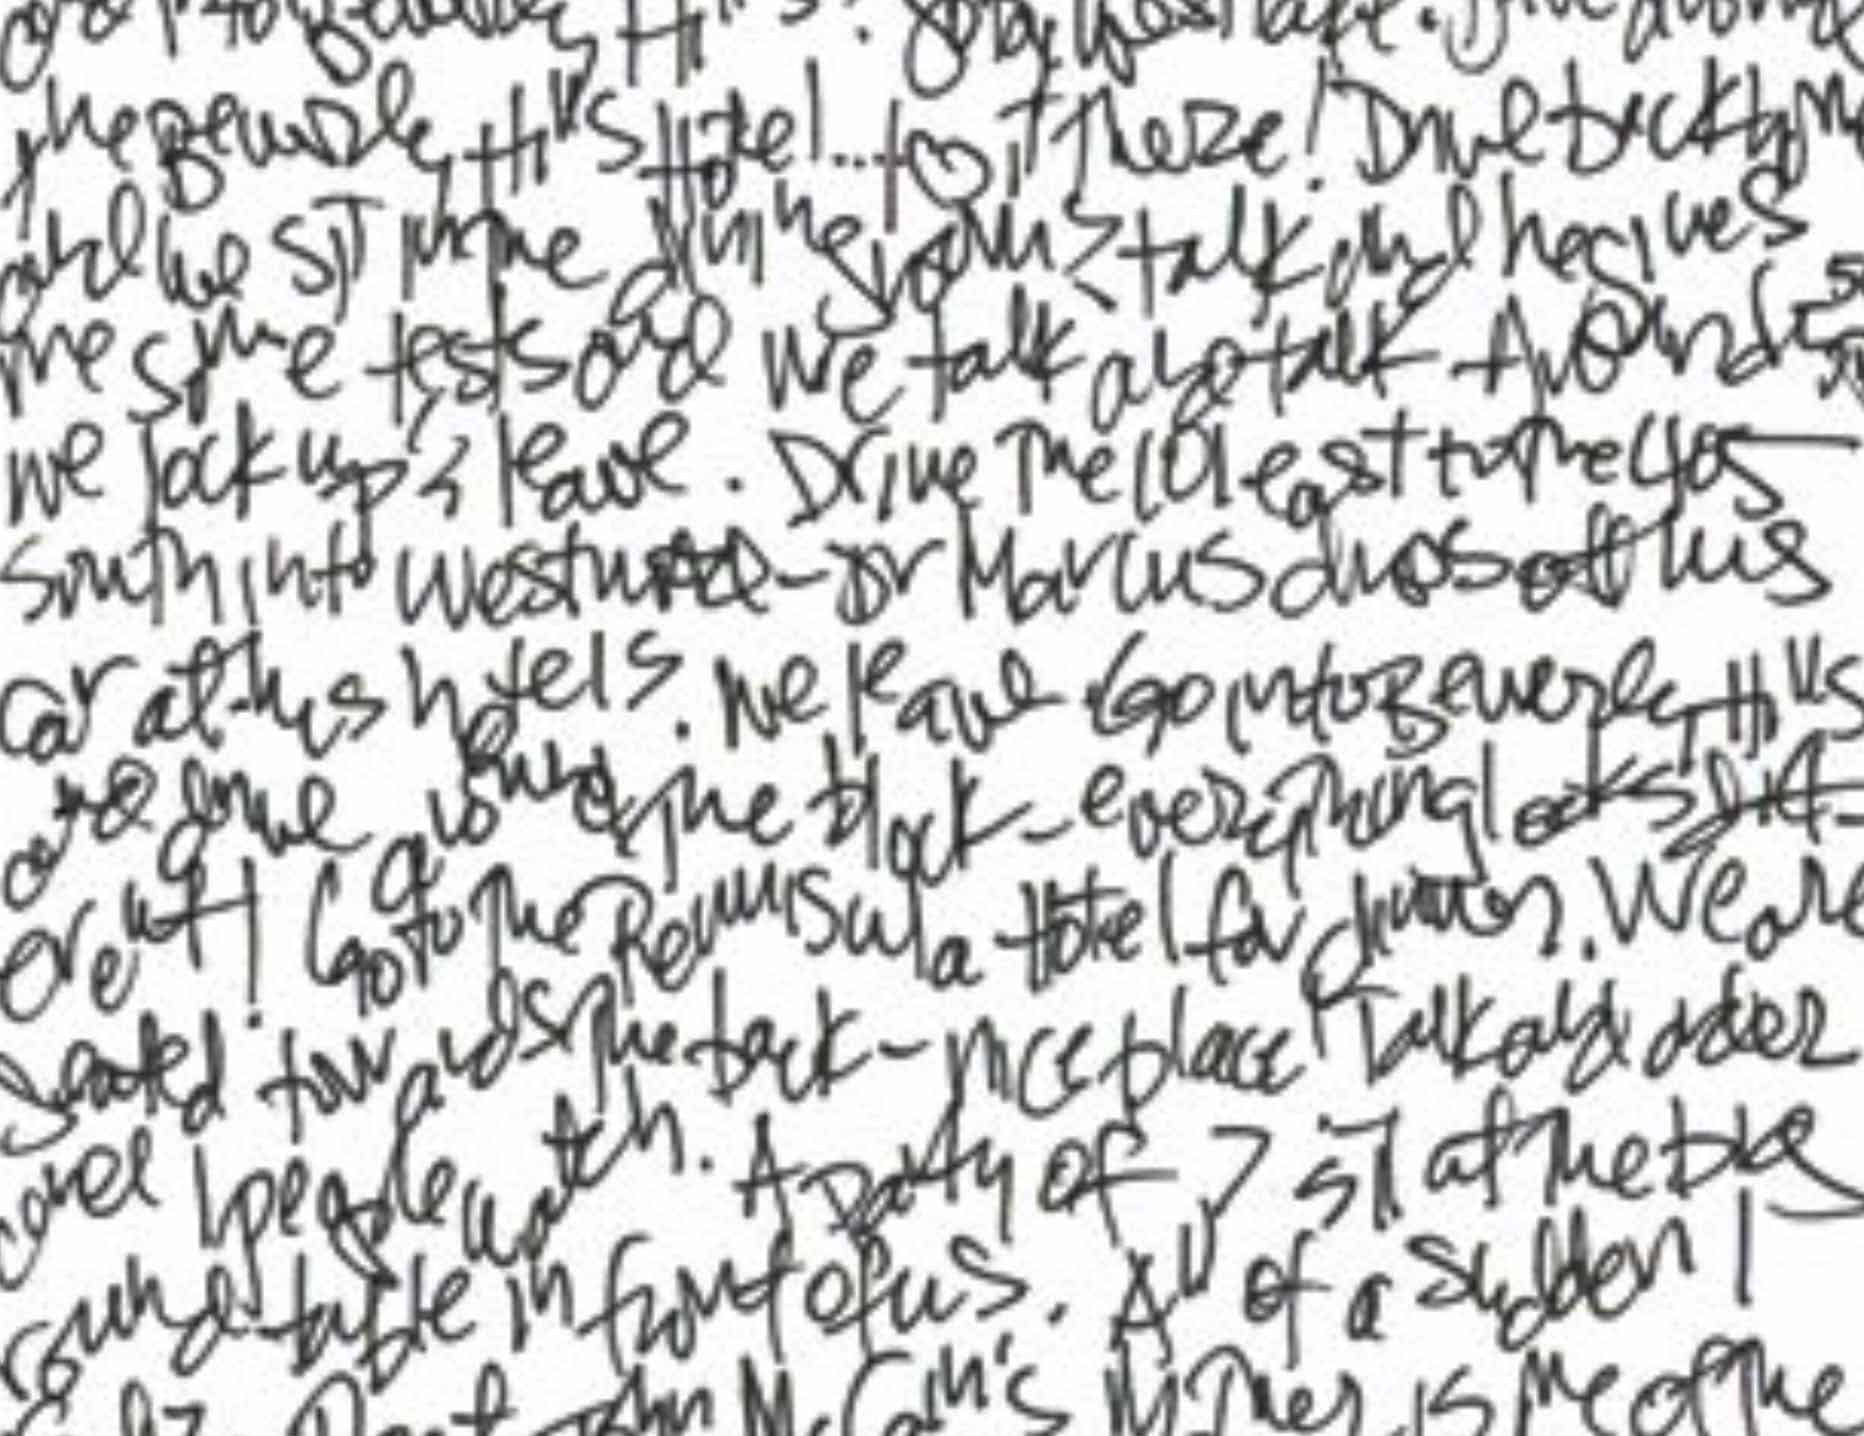 the Beverly Hills Hotel... ♡ it there! Drive back home
and we sit in the dining room & talk and he gives
me some tests and we talk also talk Around 5
we lock up & leave. Drive the 101 east to the 405
South into Westwood - Dr Marcus drops off his
car at his hotels. We leave Go into Beverly Hills
and drive around the block - everything looks diff-
erent! Go to the Peninsula Hotel for dinner. We are
Seated towards the back - nice place Talk and order
and people watch. A party of 7 sit at the big
round table in front of us. All of a sudden I
John McCain's Mother is one of the